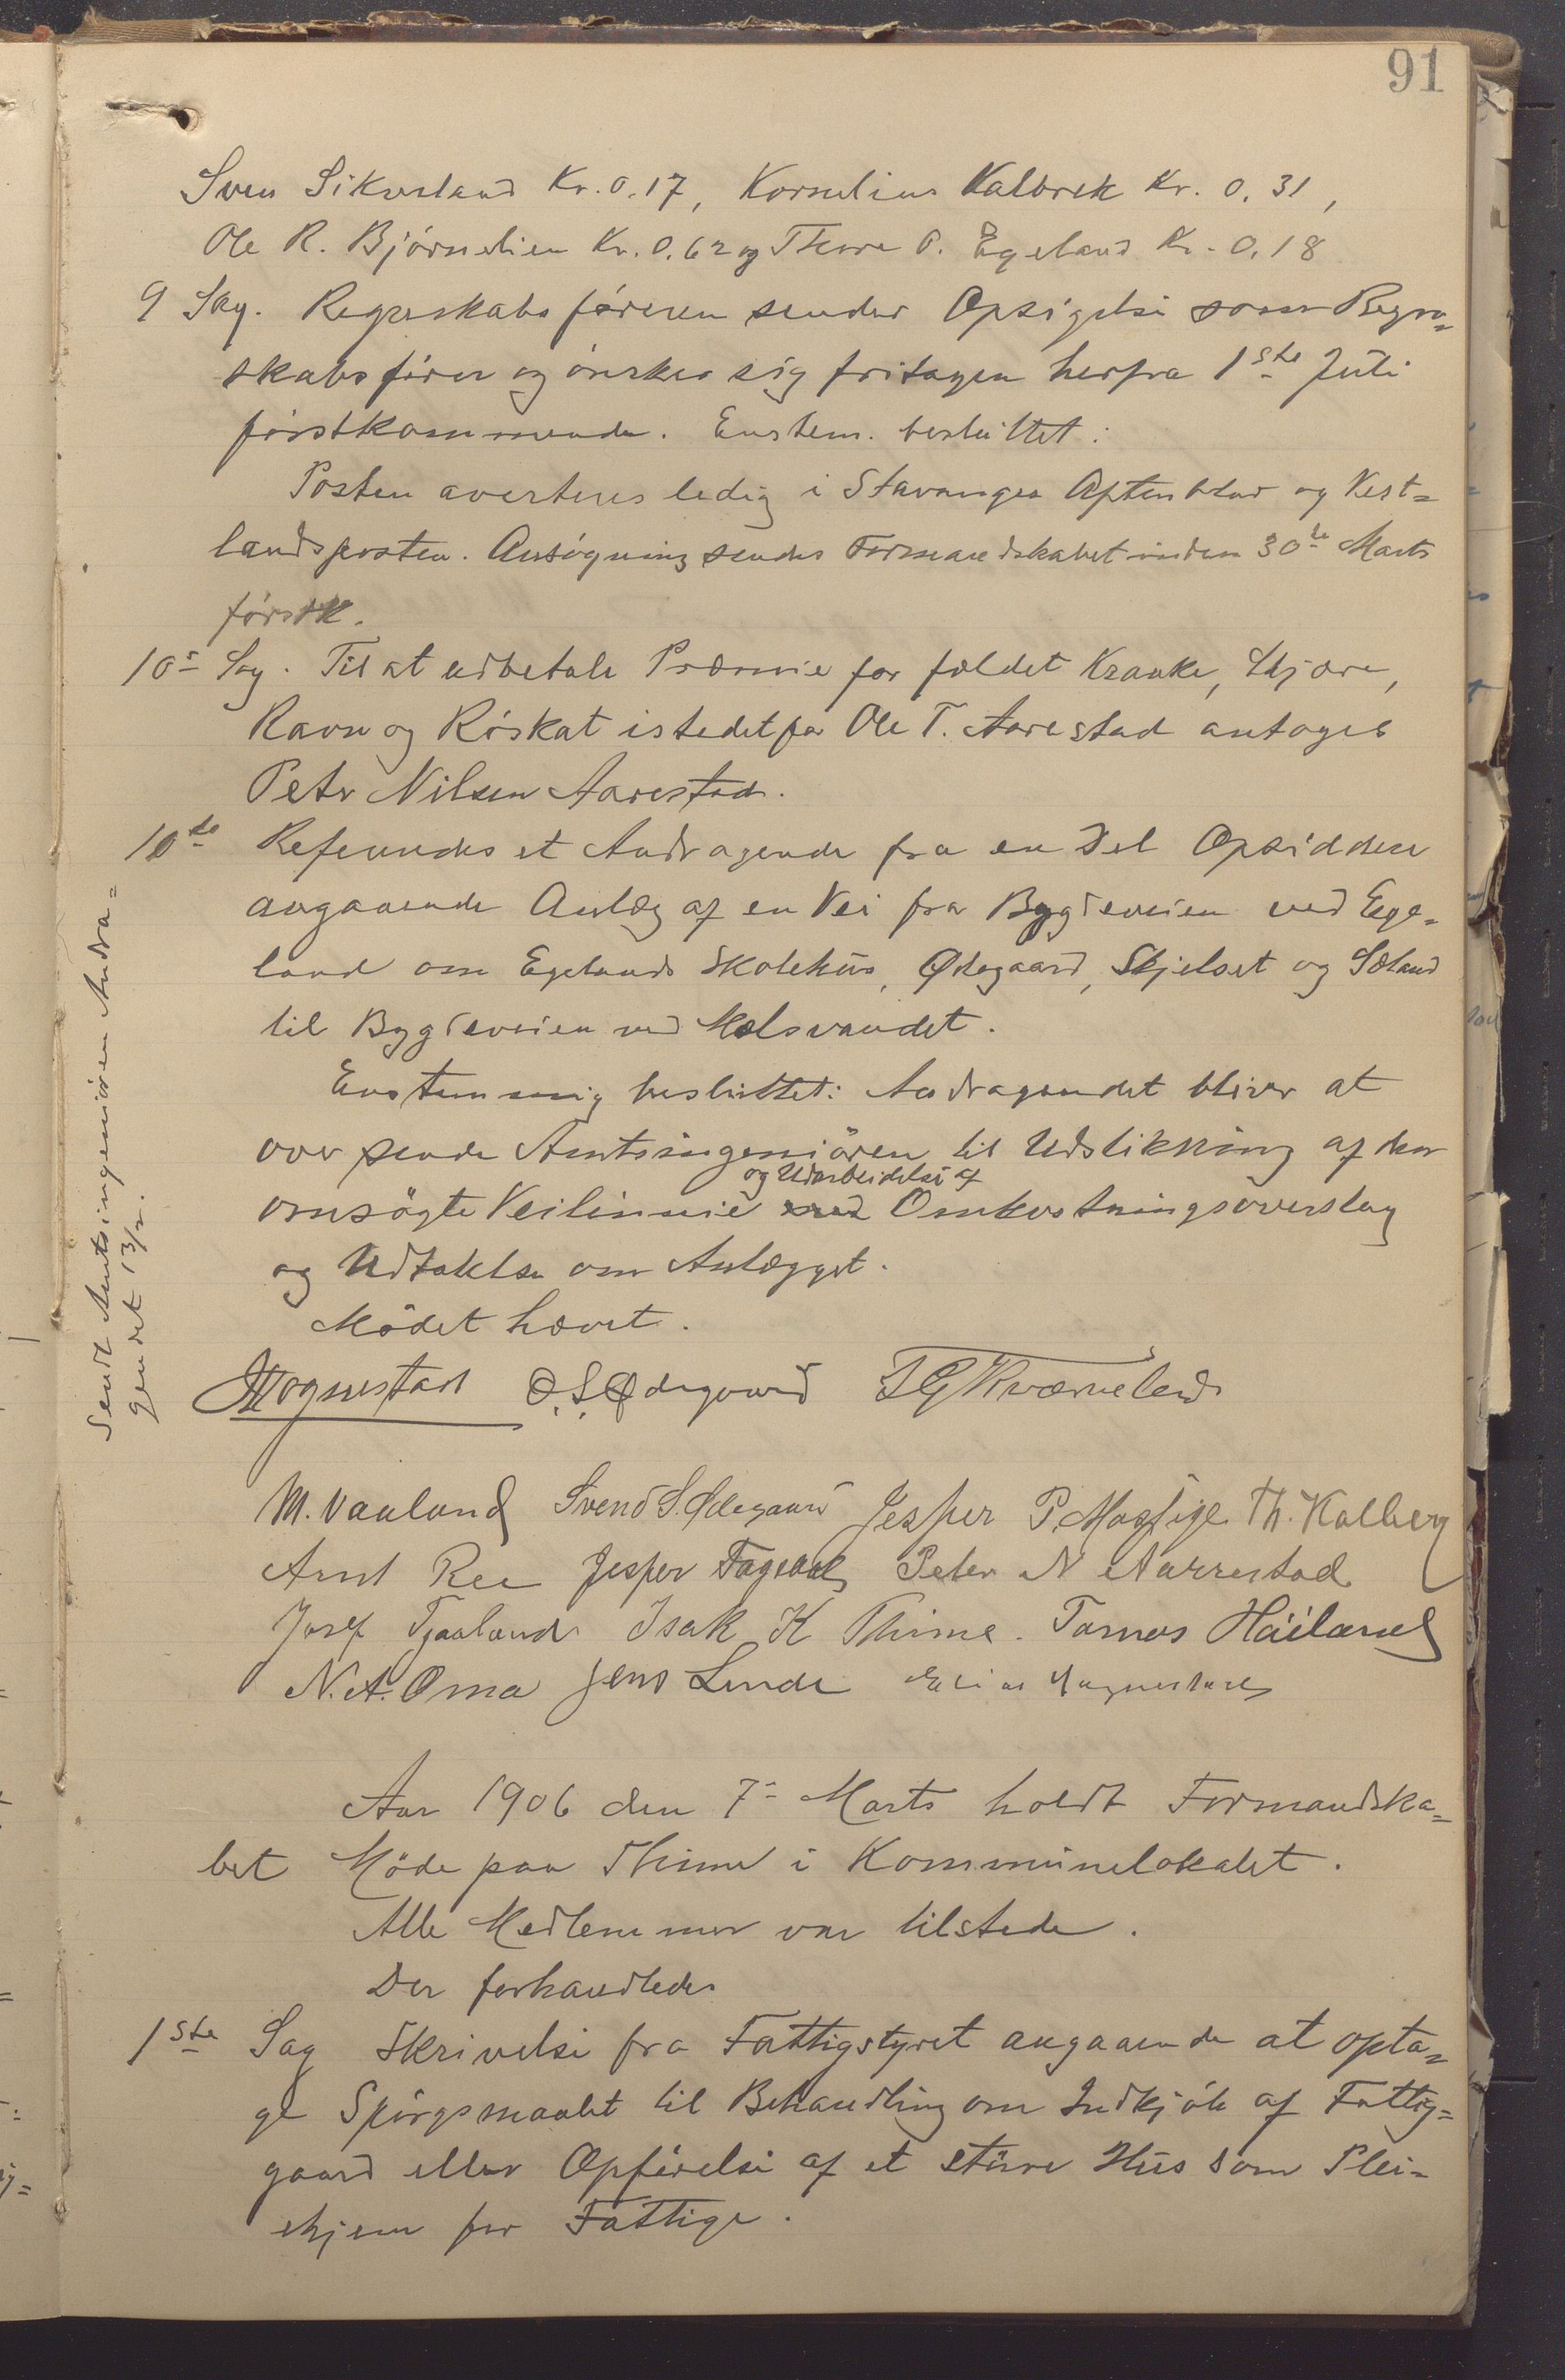 91
Sven Sikvaland Kr. 0.17, Kornelius Kalbrek Kr. 0.31,
Ole R. Bjørnelien Kr. 0.62 og Thore P. Egeland Kr. 0.18
9 Sag. Regnskabsføreren sender Opsigelse som Regn=
skabsfører og ønskes sig fritagen herfra 1ste Juli
førstkommende. Enstem. besluttet:
Posten averteres ledig i Stavanger Aftenblad og Vest=
landsposten. Ansøgning sendes Formandskabet inden 30te Marts
førstk.
10- Sag. Til at udbetale Præmie for fældet Kraake, Skjære,
Ravn og Røskat istedetfor Ole T. Aarestad antoges
Peter Nilsen Aarestad.
10de Refereredes et Andragende fra en Del Opsiddere
angaaende Anlæg af en Vei fra Bygdeveien ved Ege=
land om Egelands Skolehus, Ødegaard, Skjelset og Sæland
til Bygdeveien ved Mælsvandet.
Enstemmig besluttet: Andragendet bliver at
oversende Amtsingeniøren til Udstikning af den
og Udarbeidelse af
omsøgte Veilinnie Omkostningsoverslag
og Udtalelse om Anlægget.
Mödet hævet.
Sendt Amtsingeniøren Andra=
gendet 13/2.
Mognestad O. S. Ødegaard T G Kværneland
M. Vaaland Svend S. Ødegaard Jesper P. Mossige Th. Kalberg
Arnt Ree Jesper Fagland Peter N Aarrestad
Josef Tjaaland Isak K Thime. Tarnes Håiland
N. A. Oma Jens Lende Elias Mognestad
Aar 1906 den 7- Marts holdt Formandska=
bet Möde paa Thime i Kommunelokalet.
Alle Medlemmer var tilstede.
Der forhandledes
1ste Sag Skrivelse fra Fattigstyret angaaende at opta=
ge Spørgsmaalet til Behandling om Indkjøb af Fattig=
gaard eller Opførelse af et større Hus som Plei=
ehjem for Fattige.